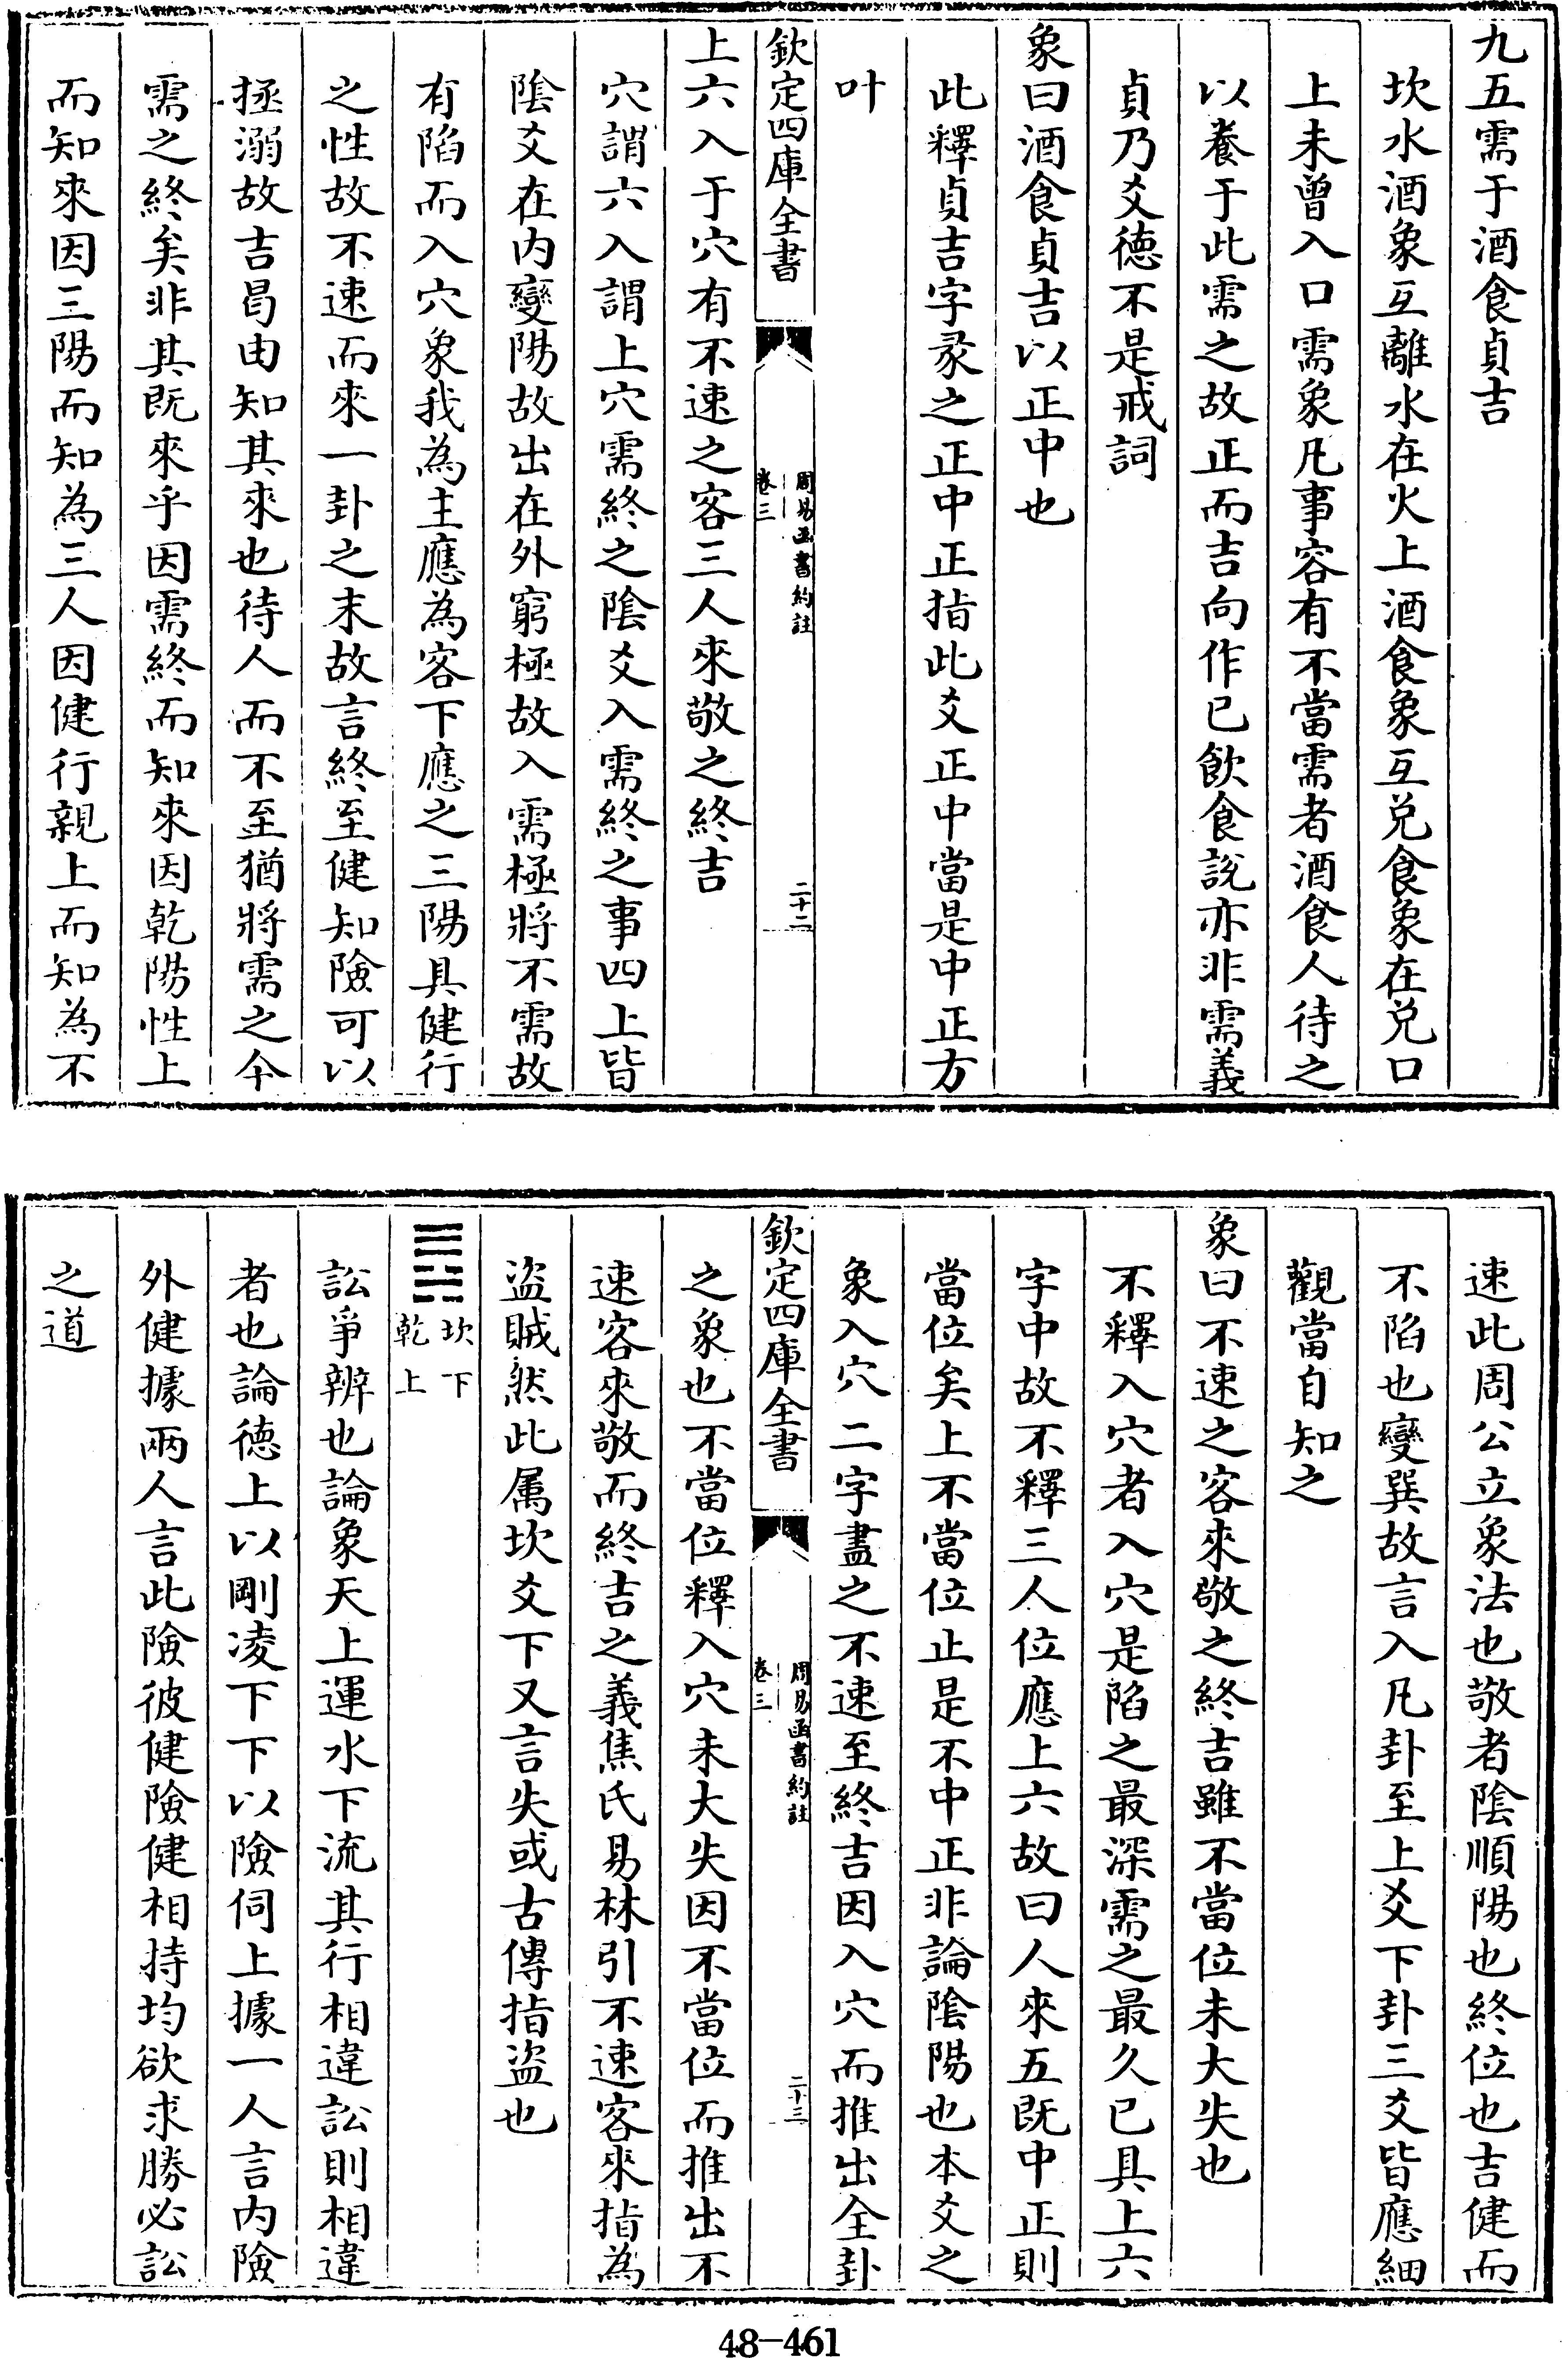 九五需于酒食貞吉
坎水酒象互離水在火上酒食象互兑食象在兑口
上未曾入口需象凡事容有不當需者酒食人待之
以養于此需之故正而吉向作已飲食說亦非需義
貞乃爻德不是戒詞
象曰酒食貞吉以正中也
此釋貞吉字彖之正中正指此爻正中當是中正方
叶
欽定四庫全書
周易函書約註
卷三
二十二
上六入于穴有不速之客三人來敬之終吉
穴謂六入謂上穴需終之陰爻入需終之事四上皆
陰爻在内變陽故出在外窮極故入需極將不需故
有陷而入穴象我為主應為客下應之三陽具健行
之性故不速而來一卦之末故言終至健知險可以
拯溺故吉曷由知其來也待人而不至猶將需之今
需之終矣非其既來乎因需終而知來因乾陽性上
而知來因三陽而知為三人因健行親上而知為不
速此周公立象法也敬者陰順陽也終位也吉健而
不陷也變巽故言入凡卦至上爻下卦三爻皆應細
觀當自知之
象曰不速之客來敬之終吉雖不當位未大失也
不釋入穴者入穴是陷之最深需之最久已具上六
字中故不釋三人位應上六故曰人來五既中正則
當位矣上不當位止是不中正非論陰陽也本爻之
象入穴二字盡之不速至終吉因入穴而推出全卦
欽定四庫全書
周易函書約註
卷三
二十三
之象也不當位釋入穴未大失因不當位而推出不
速客來敬而終吉之義焦氏易林引不速客來指為
盜賊然此属坎爻下又言失或古傳指盜也
䷅
坎下
乾上
訟爭辨也論象天上運水下流其行相違訟則相違
者也論德上以剛凌下下以險伺上據一人言内險
外健據兩人言此險彼健險健相持均欲求勝必訟
之道
48-461